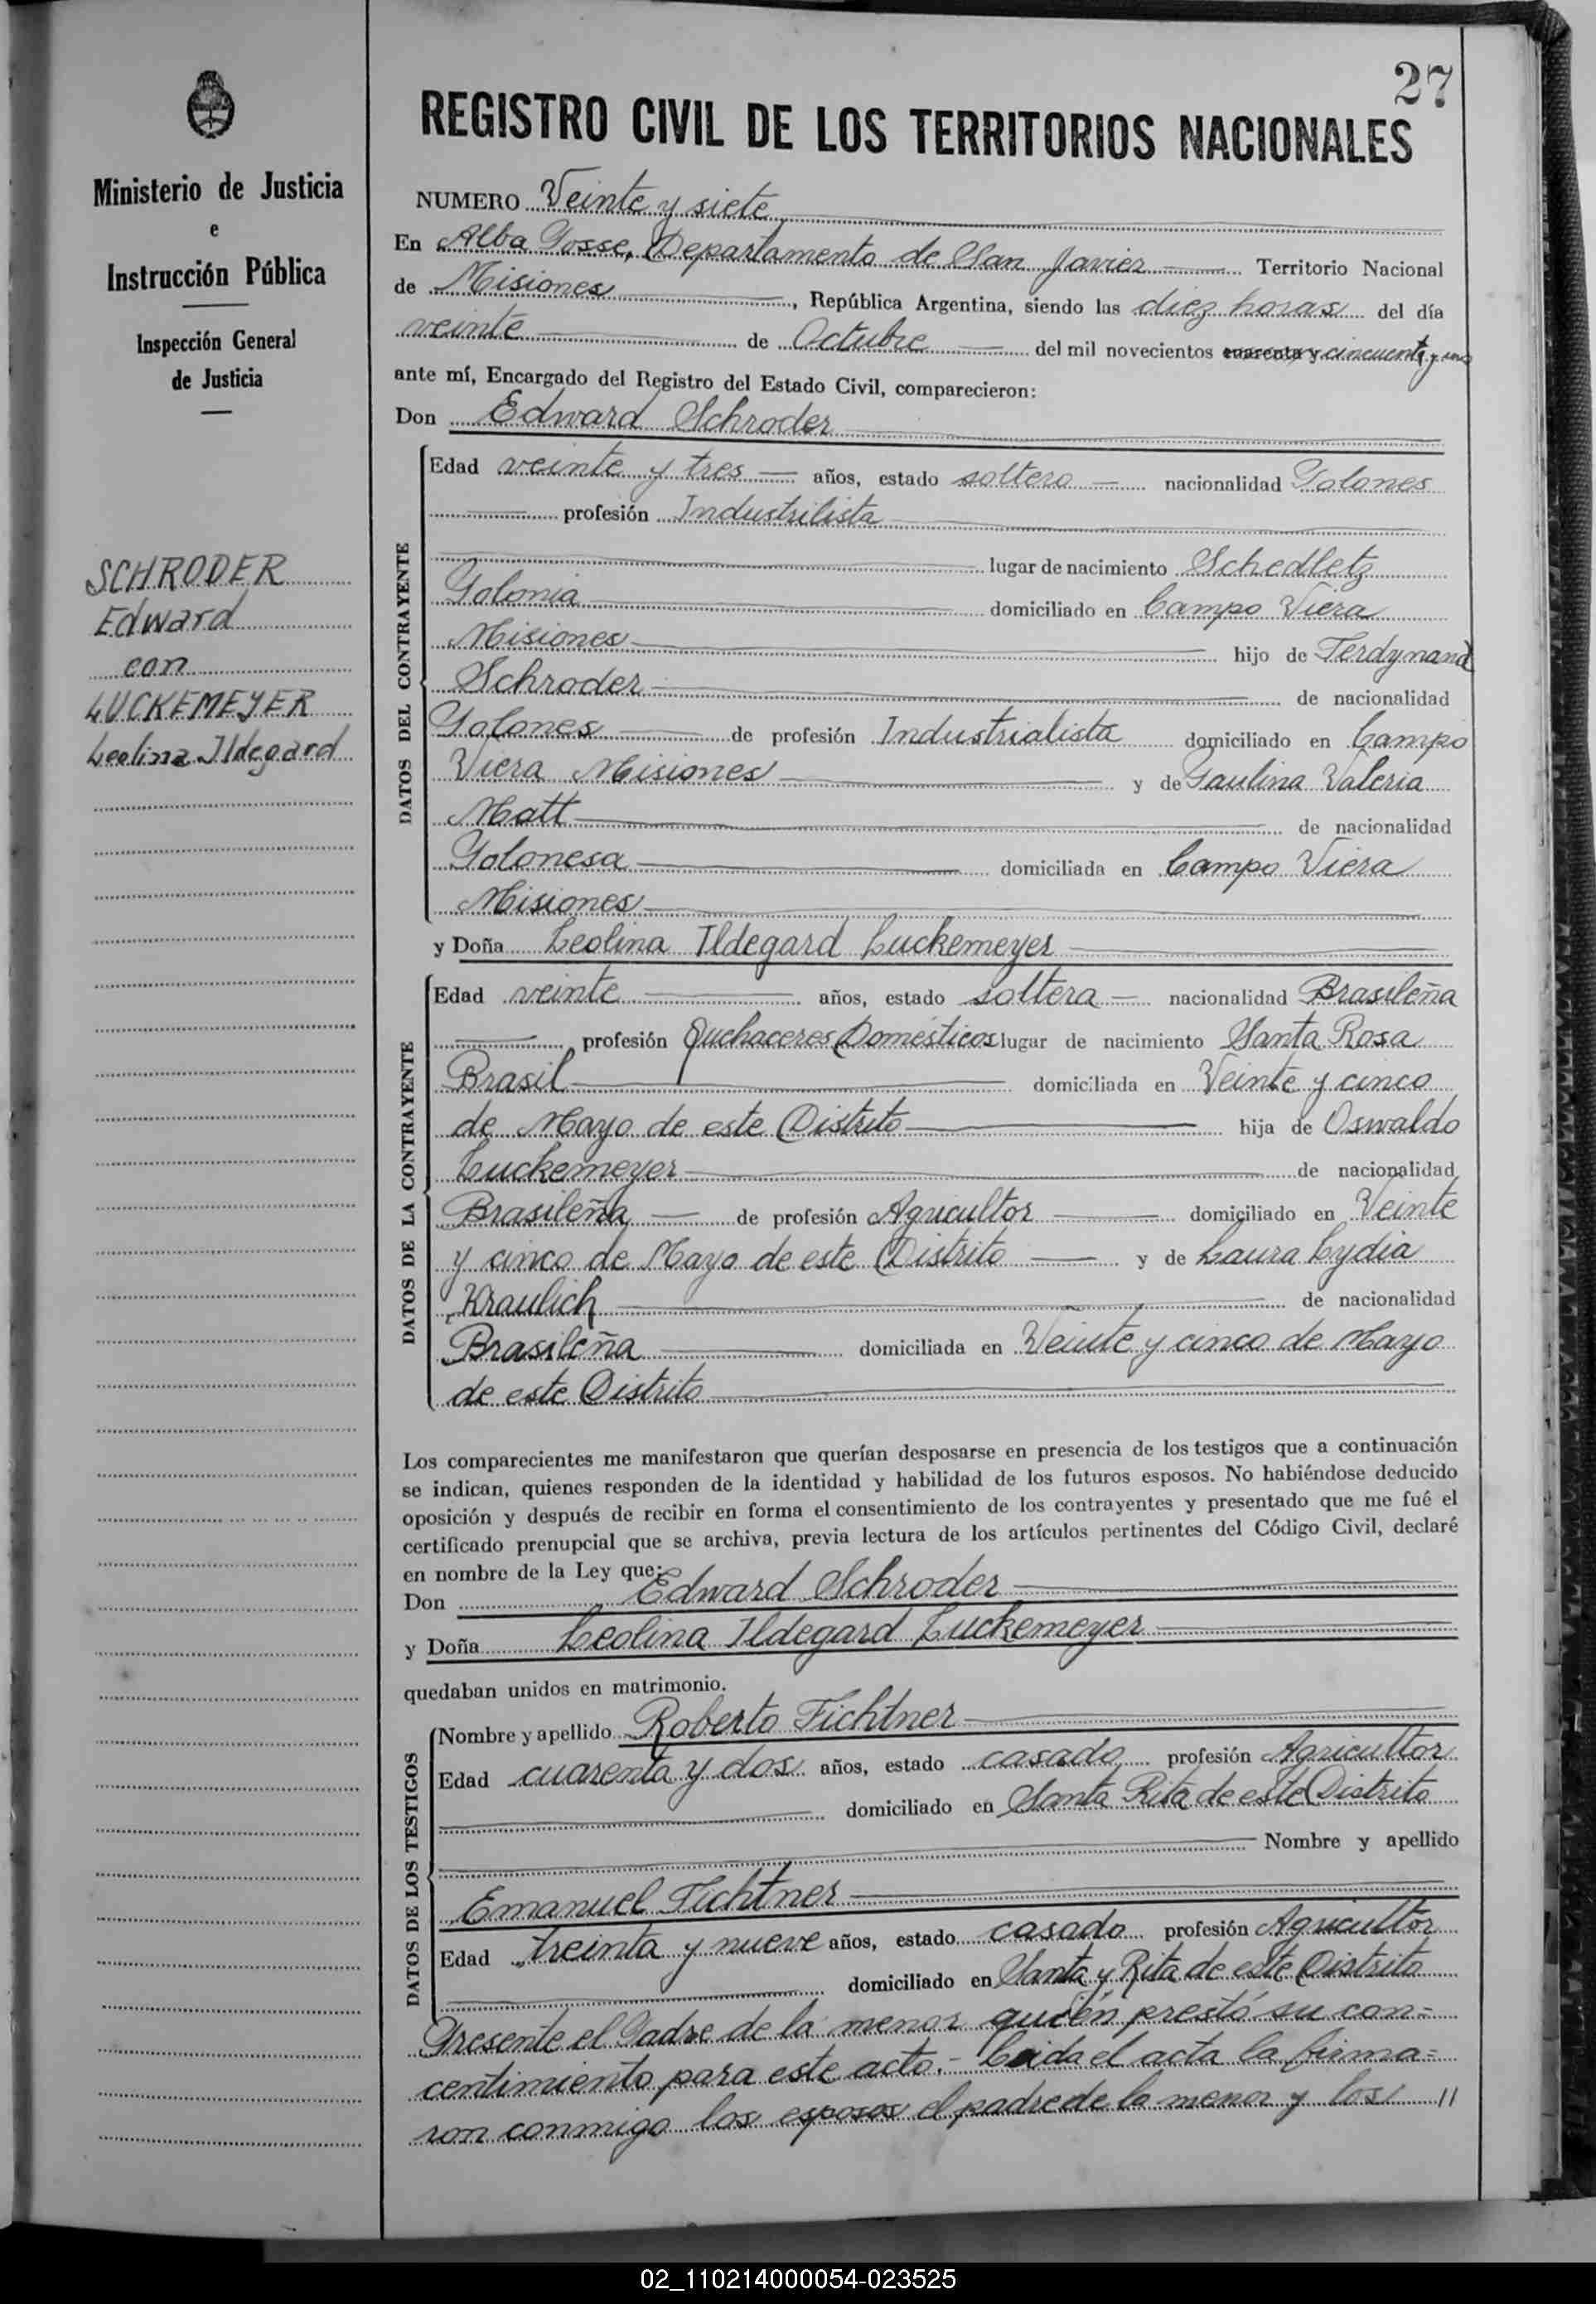 27
REGISTRO CIVIL DE LOS TERRITORIOS NACIONALES
Ministerio de Justicia
e
Instrucción Pública
Inspección General
de Justicia
SCHRODER
Edward
con
LUCKEMEYER
Leolina Ildegard
NUMERO Veinte y siete
En Alba Posse, Departamento de San Javier Territorio Nacional
de Misiones, República Argentina, siendo las diez horas del día
veinte de Octubre del mil novecientos cuarenta y cincuenta y uno
ante mí, Encargado del Registro del Estado Civil, comparecieron:
Don Edward Schroder
DATOS DEL CONTRAYENTE
Edad veinte y tres años, estado soltero nacionalidad Polones
profesión Industrilista
lugar de nacimiento Schedletz
Polonia domiciliado en Campo Viera
Misiones hijo de Ferdynand
Schroder de nacionalidad
Polones de profesión Industrialista domiciliado en Campo
Viera Misiones y de Paulina Valeria
Matt de nacionalidad
Polonesa domiciliada en Campo Viera
Misiones
y Doña Leolina Ildegard Luckemeyer
DATOS DE LA CONTRAYENTE
Edad veinte años, estado soltera nacionalidad Brasileña
profesión Quehaceres Domésticos lugar de nacimiento Santa Rosa
Brasil domiciliada en Veinte y cinco
de Mayo de este Distrito hija de Oswaldo
Luckemeyer de nacionalidad
Brasileña de profesión Agricultor domiciliado en Veinte
y cinco de Mayo de este Distrito y de Laura Lydia
Kraulich de nacionalidad
Brasileña domiciliada en Veinte y cinco de Mayo
de este Distrito
Los comparecientes me manifestaron que querían desposarse en presencia de los testigos que a continuación
se indican, quienes responden de la identidad y habilidad de los futuros esposos. No habiéndose deducido
oposición y después de recibir en forma el consentimiento de los contrayentes y presentado que me fué el
certificado prenupcial que se archiva, previa lectura de los artículos pertinentes del Código Civil, declaré
en nombre de la Ley que:
Don Edward Schroder
y Doña Leolina Ildegard Luckemeyer
quedaban unidos en matrimonio.
DATOS DE LOS TESTIGOS
Nombre y apellido Roberto Fichtner
Edad cuarenta y dos años, estado casado profesión Agricultor
domiciliado en Santa Rita de este Distrito
Nombre y apellido
Emanuel Fichtner
Edad treinta y nueve años, estado casado profesión Agricultor
domiciliado en Santa y Rita de este Distrito
Presente el Padre de la menor quién prestó su con=
centimiento para este acto.- Leida el acta la firma=
ron conmigo los esposos el padre de la menor y los //
02_110214000054-023525